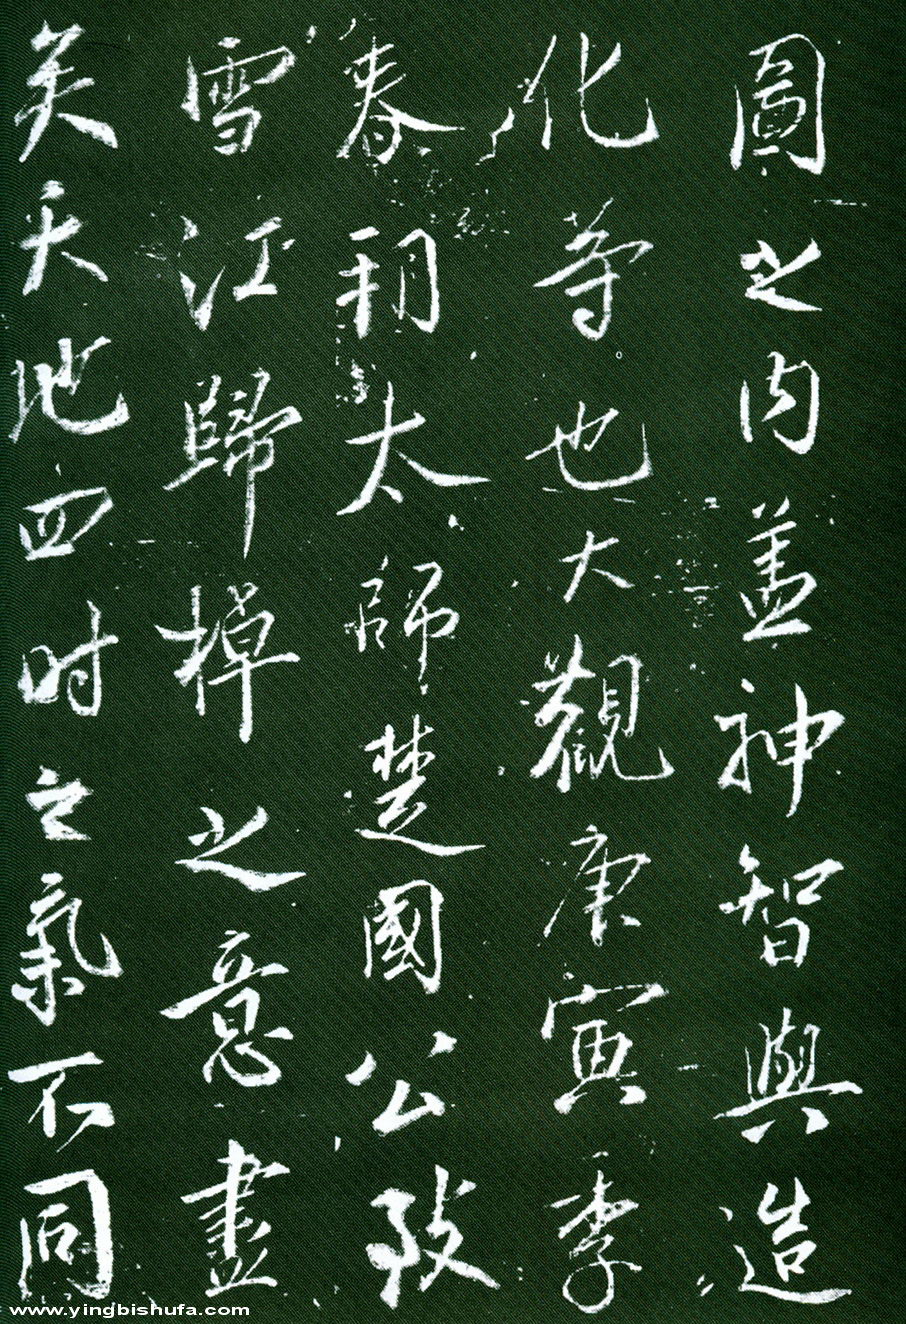 圖之內蓋神智與造
化等也大觀庚寅季
春朔太師楚國公致
雪江歸棹之意盡
矣天地四时之氣不同
www.yingbishufa.com